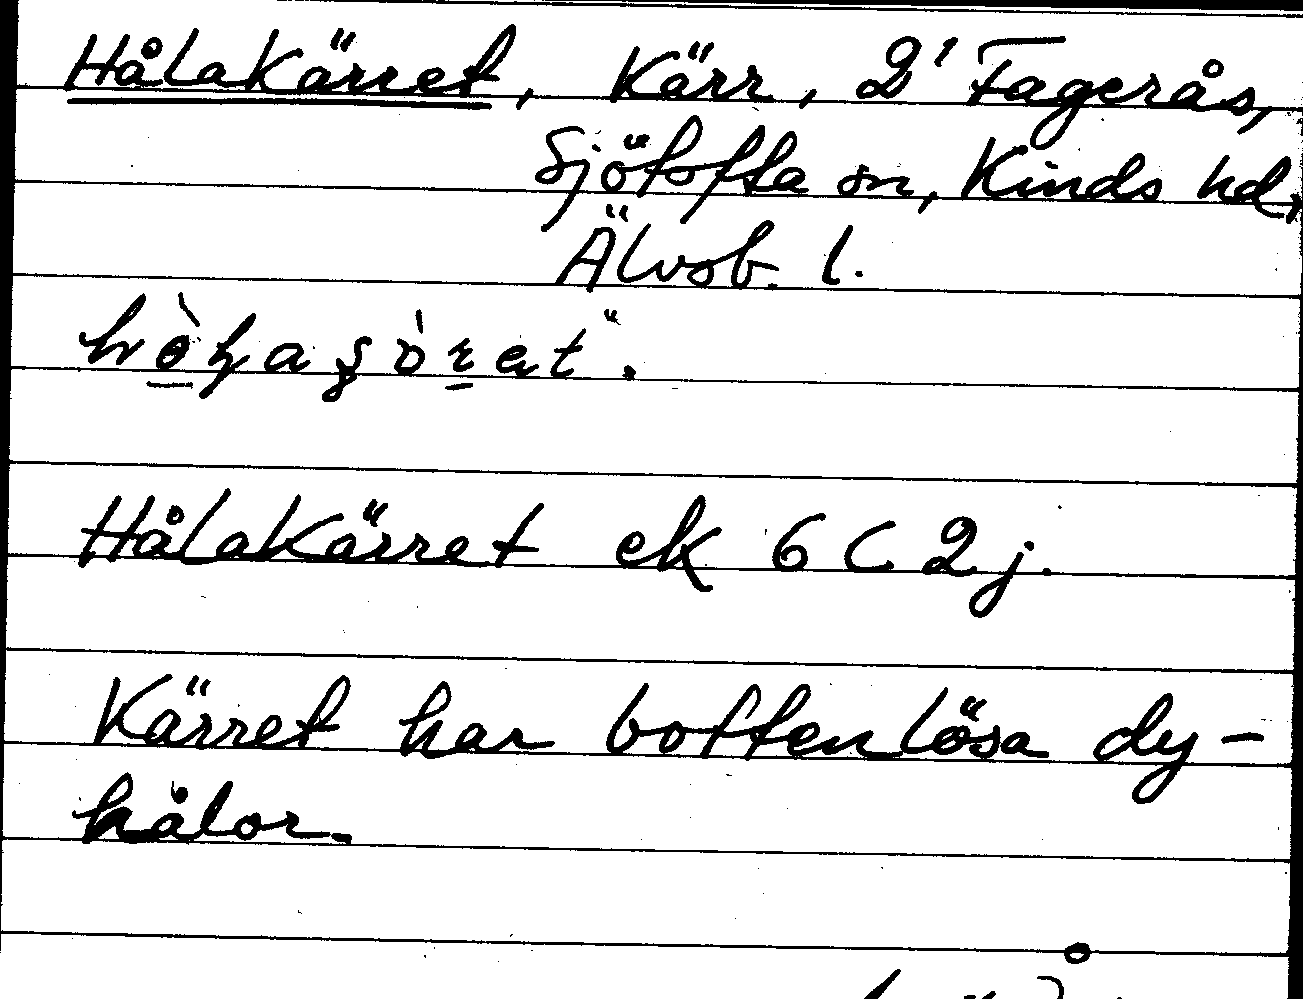 Hålakärret, Kärr, 2' Fagerås,
Sjötofta sn, Kinds hd,
Älvsb. l.
Hålakärret ek 6 C 2 j.
Kärret har bottenlösa dy-
hålor.